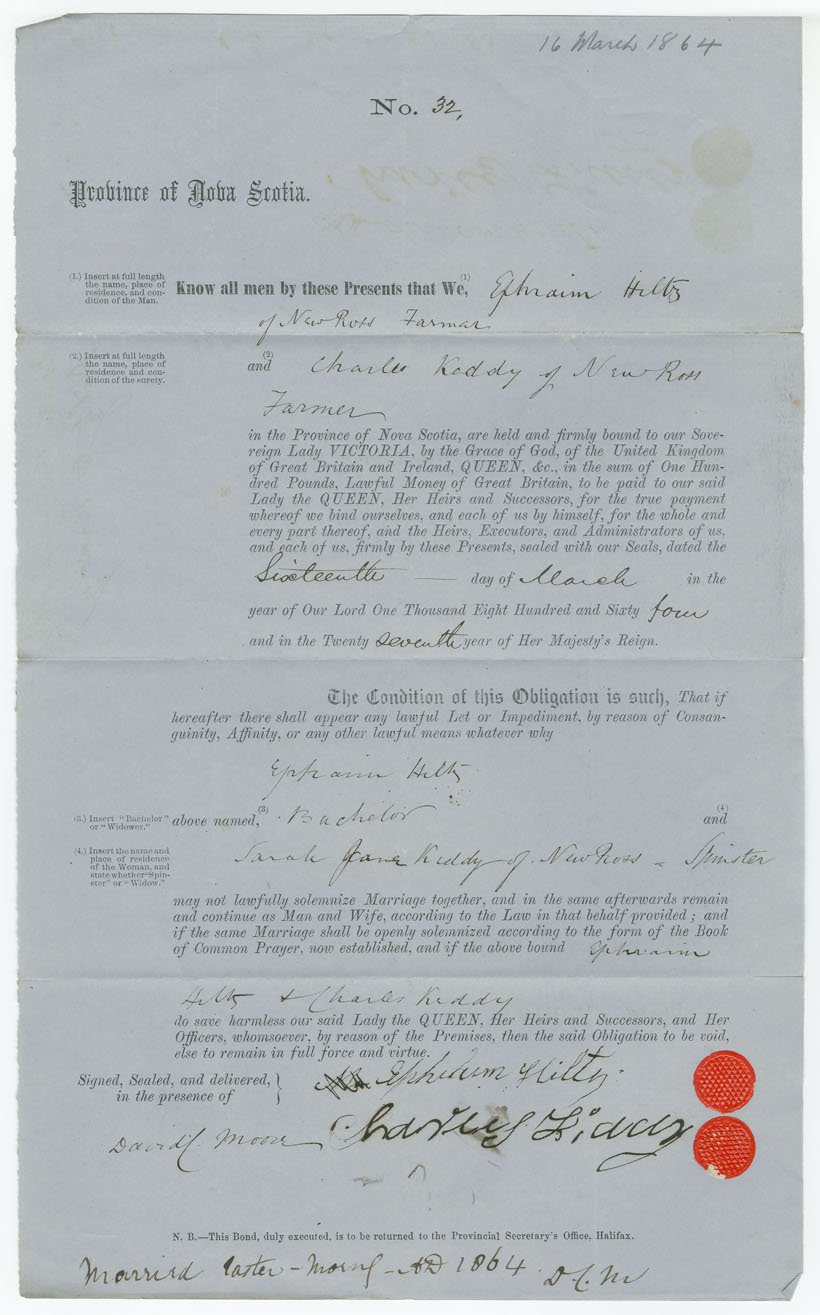 16 March 1864
No. 32,
Province of Nova Scotia.
(1.) Insert at full length
the name, place of
residence, and con-
dition of the Man.
Know all men by these Presents that We, (1) Ephraim Hiltz
of New Ross Farmar
(2.) Insert at full length
the name, place of
residence and con-
dition of the surety.
(2)
and Charles Keddy of New Ross
Farmer
in the Province of Nova Scotia, are held and firmly bound to our Sove-
reign Lady VICTORIA, by the Grace of God, of the United Kingdom
of Great Britain and Ireland, QUEEN, &c., in the sum of One Hun-
dred Pounds, Lawful Money of Great Britain, to be paid to our said
Lady the QUEEN, Her Heirs and Successors, for the true payment
whereof we bind ourselves, and each of us by himself, for the whole and
every part thereof, and the Heirs, Executors, and Administrators of us,
and each of us, firmly by these Presents, sealed with our Seals, dated the
Sixteenth — day of March in the
year of Our Lord One Thousand Eight Hundred and Sixty four
and in the Twenty seventh year of Her Majesty's Reign.
The Condition of this Obligation is such, That if
hereafter there shall appear any lawful Let or Impediment, by reason of Consan-
guinity, Affinity, or any other lawful means whatever why
Ephraim Hiltz
(3.) Insert "Bachelor"
or "Widower."
above named, (3) Bachelor (4) and
(4.) Insert the name and
place of residence
of the Woman, and
state whether "Spin-
ster" or "Widow."
Sarah Jane Keddy of New Ross - Spinster
may not lawfully solemnize Marriage together, and in the same afterwards remain
and continue as Man and Wife, according to the Law in that behalf provided; and
if the same Marriage shall be openly solemnized according to the form of the Book
of Common Prayer, now established, and if the above bound Ephraim
Hiltz & Charles Keddy
do save harmless our said Lady the QUEEN, Her Heirs and Successors, and Her
Officers, whomsoever, by reason of the Premises, then the said Obligation to be void,
else to remain in full force and virtue.
Signed, Sealed, and delivered,
in the presence of
Ephraim Hiltz
David C. Moore
Charles Kiddy
N. B.—This Bond, duly executed, is to be returned to the Provincial Secretary's Office, Halifax.
Married Easter - Morng - AD 1864. D. C. M